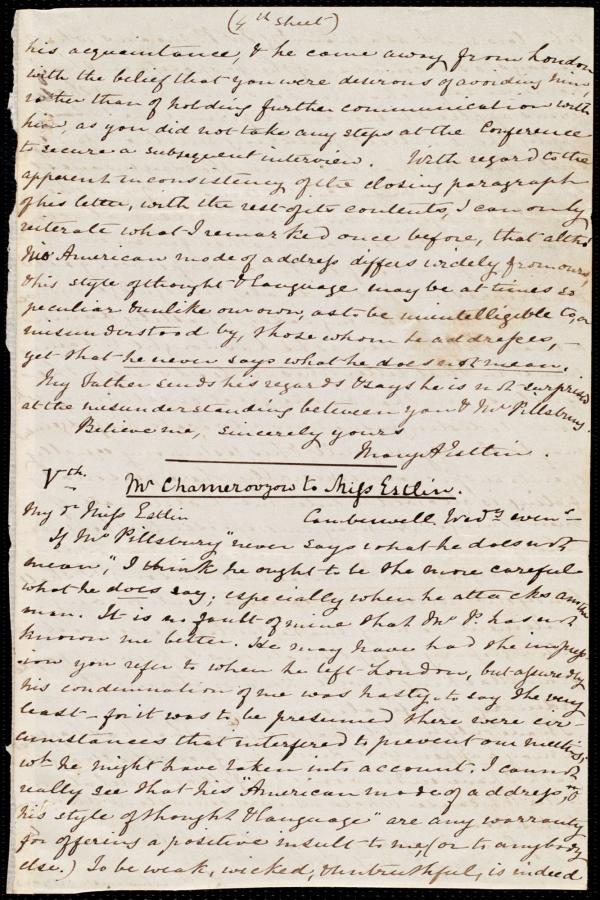 (4th Sheet)
his acquaintance, & he came away from London
with the belief that you were desirous of avoiding him,
rather than of holding further communication with
him, as you did not take any steps at the Conference
to secure a subsequent interview. With regard to the
apparent inconsistency of the closing paragraph
of his letter, with the rest of its contents, I can only
reiterate what I remarked once before, that altho'
the American mode of address differs widely from ours,
& his style of thought & language may be at times so
peculiar & unlike our own, as to be unintelligible to, or
misunderstood by, those whom he addresses, –
yet that he never says what he does not mean.
My Father sends his regards & says he is not surprised
at the misunderstanding between you & Mr Pillsbury.
Believe me, sincerely yours
Mary A Estlin.
Vth.
Mr Chamerovzow to Miss Estlin.
My dr Miss Estlin Camberwell, Wedy even–
If Mr Pillsbury "never says what he does not
mean", I think he ought to be the more careful
what he does say; especially when he attacks another
man. It is no fault of mine that Mr P. has not
known me better. He may have had the impress-
ion you refer to when he left London, but assuredly
his condemnation of me was hasty to say the very
least – for it was to be presumed there were cir-
cumstances that interfered to prevent our meeting;
wh he might have taken into account. I cannot
really see that his "American mode of address, or
his style of thought & language" are any warranty
for offering a positive insult to me, (or to anybody
else.) To be weak, wicked, & untruthful, is indeed